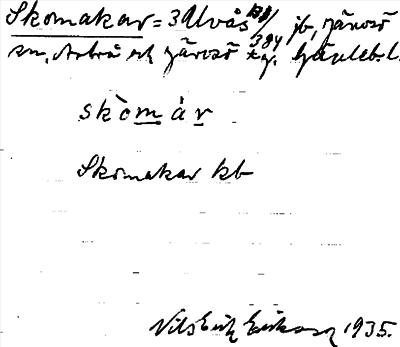 Skomakar = 3 Ulvås 384 jb, Järvsö
sn, Arbrå och Järvsö tg. Gävleb. l.
skòmàr
Skomakar kb
Nils Erik Eriksson 1935.